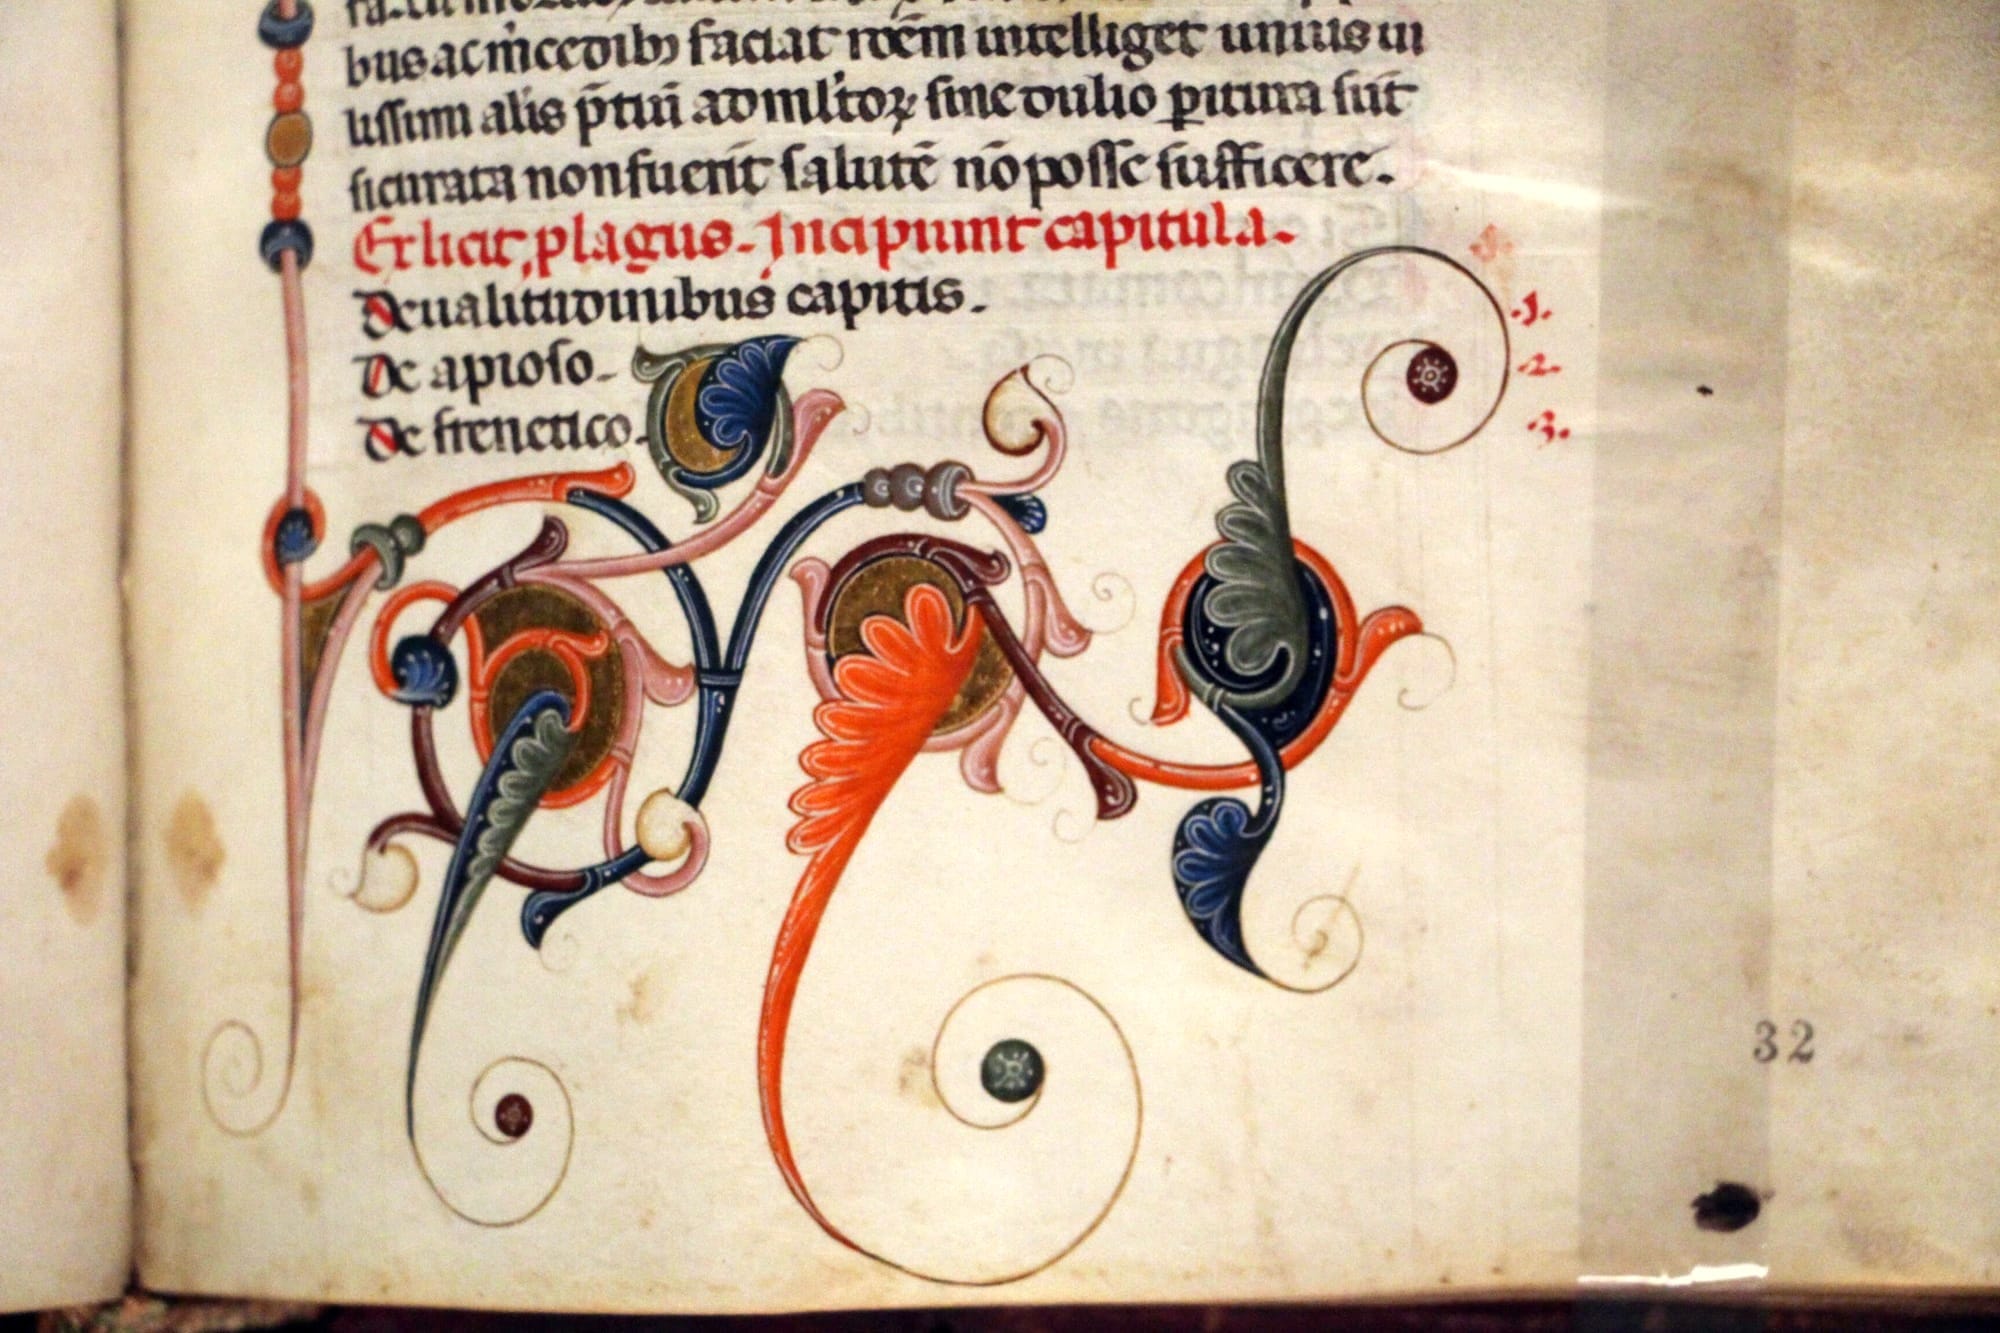 bus ac m̄cedib; faciat rōēm intelliget unius ui
lissimi alis p̄tim̄ ad ml'toꝝ sine dubio ꝑitura sūt
si curata non fuerīt salutē nō posse sufficere.
Exlicit, plagus. Incipiunt capitula.
De ualitudinibus capitis. .1.
De apioso. .2.
De frenetico. .3.
32